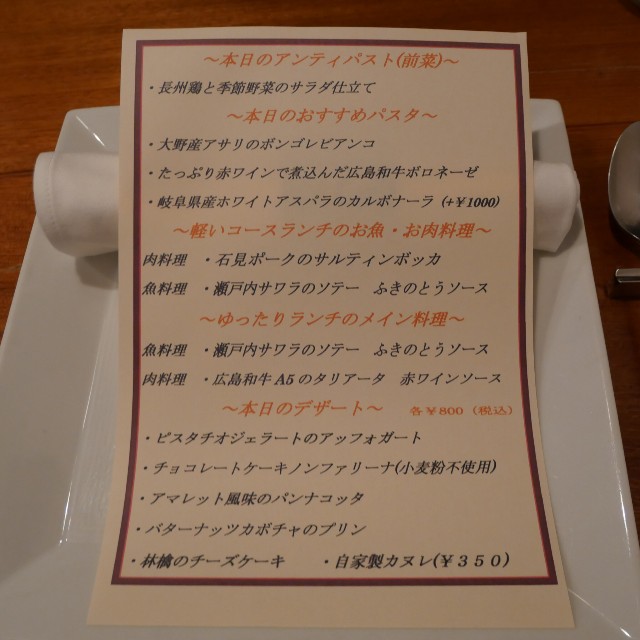 ～本日のアンティパスト(前菜)～
・長州鶏と季節野菜のサラダ仕立て
～本日のおすすめパスタ～
・大野産アサリのボンゴレビアンコ
・たっぷり赤ワインで煮込んだ広島和牛ボロネーゼ
・岐阜県産ホワイトアスパラのカルボナーラ (+￥1000)
～軽いコースランチのお魚・お肉料理～
肉料理 ・石見ポークのサルティンボッカ
魚料理 ・瀬戸内サワラのソテー ふきのとうソース
～ゆったりランチのメイン料理～
魚料理 ・瀬戸内サワラのソテー ふきのとうソース
肉料理 ・広島和牛A5のタリアータ 赤ワインソース
～本日のデザート～ 各￥800（税込）
・ピスタチオジェラートのアッフォガート
・チョコレートケーキノンファリーナ(小麦粉不使用)
・アマレット風味のパンナコッタ
・バターナッツカボチャのプリン
・林檎のチーズケーキ ・自家製カヌレ(￥３５０)